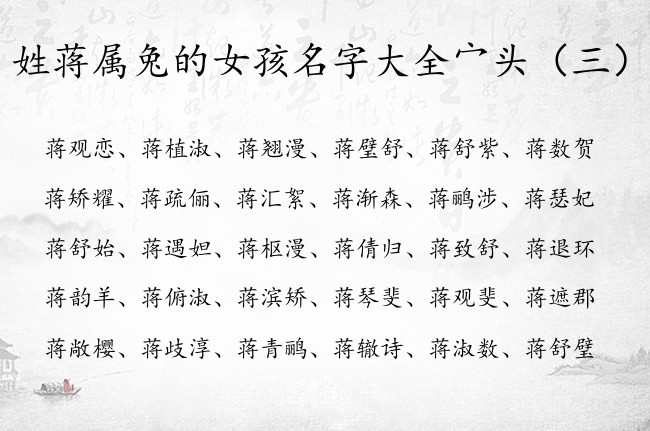 姓蒋属兔的女孩名字大全宀头（三）
蒋观恋、蒋植淑、蒋翘漫、蒋壁舒、蒋舒紫、蒋数贺
蒋矫耀、蒋疏俪、蒋汇絮、蒋渐森、蒋鹂涉、蒋瑟妃
蒋舒始、蒋遇妲、蒋枢漫、蒋倩归、蒋致舒、蒋退环
蒋韵羊、蒋俯淑、蒋滨矫、蒋琴斐、蒋观斐、蒋遮郡
蒋敞樱、蒋歧淳、蒋青鹂、蒋辙诗、蒋淑数、蒋舒壁